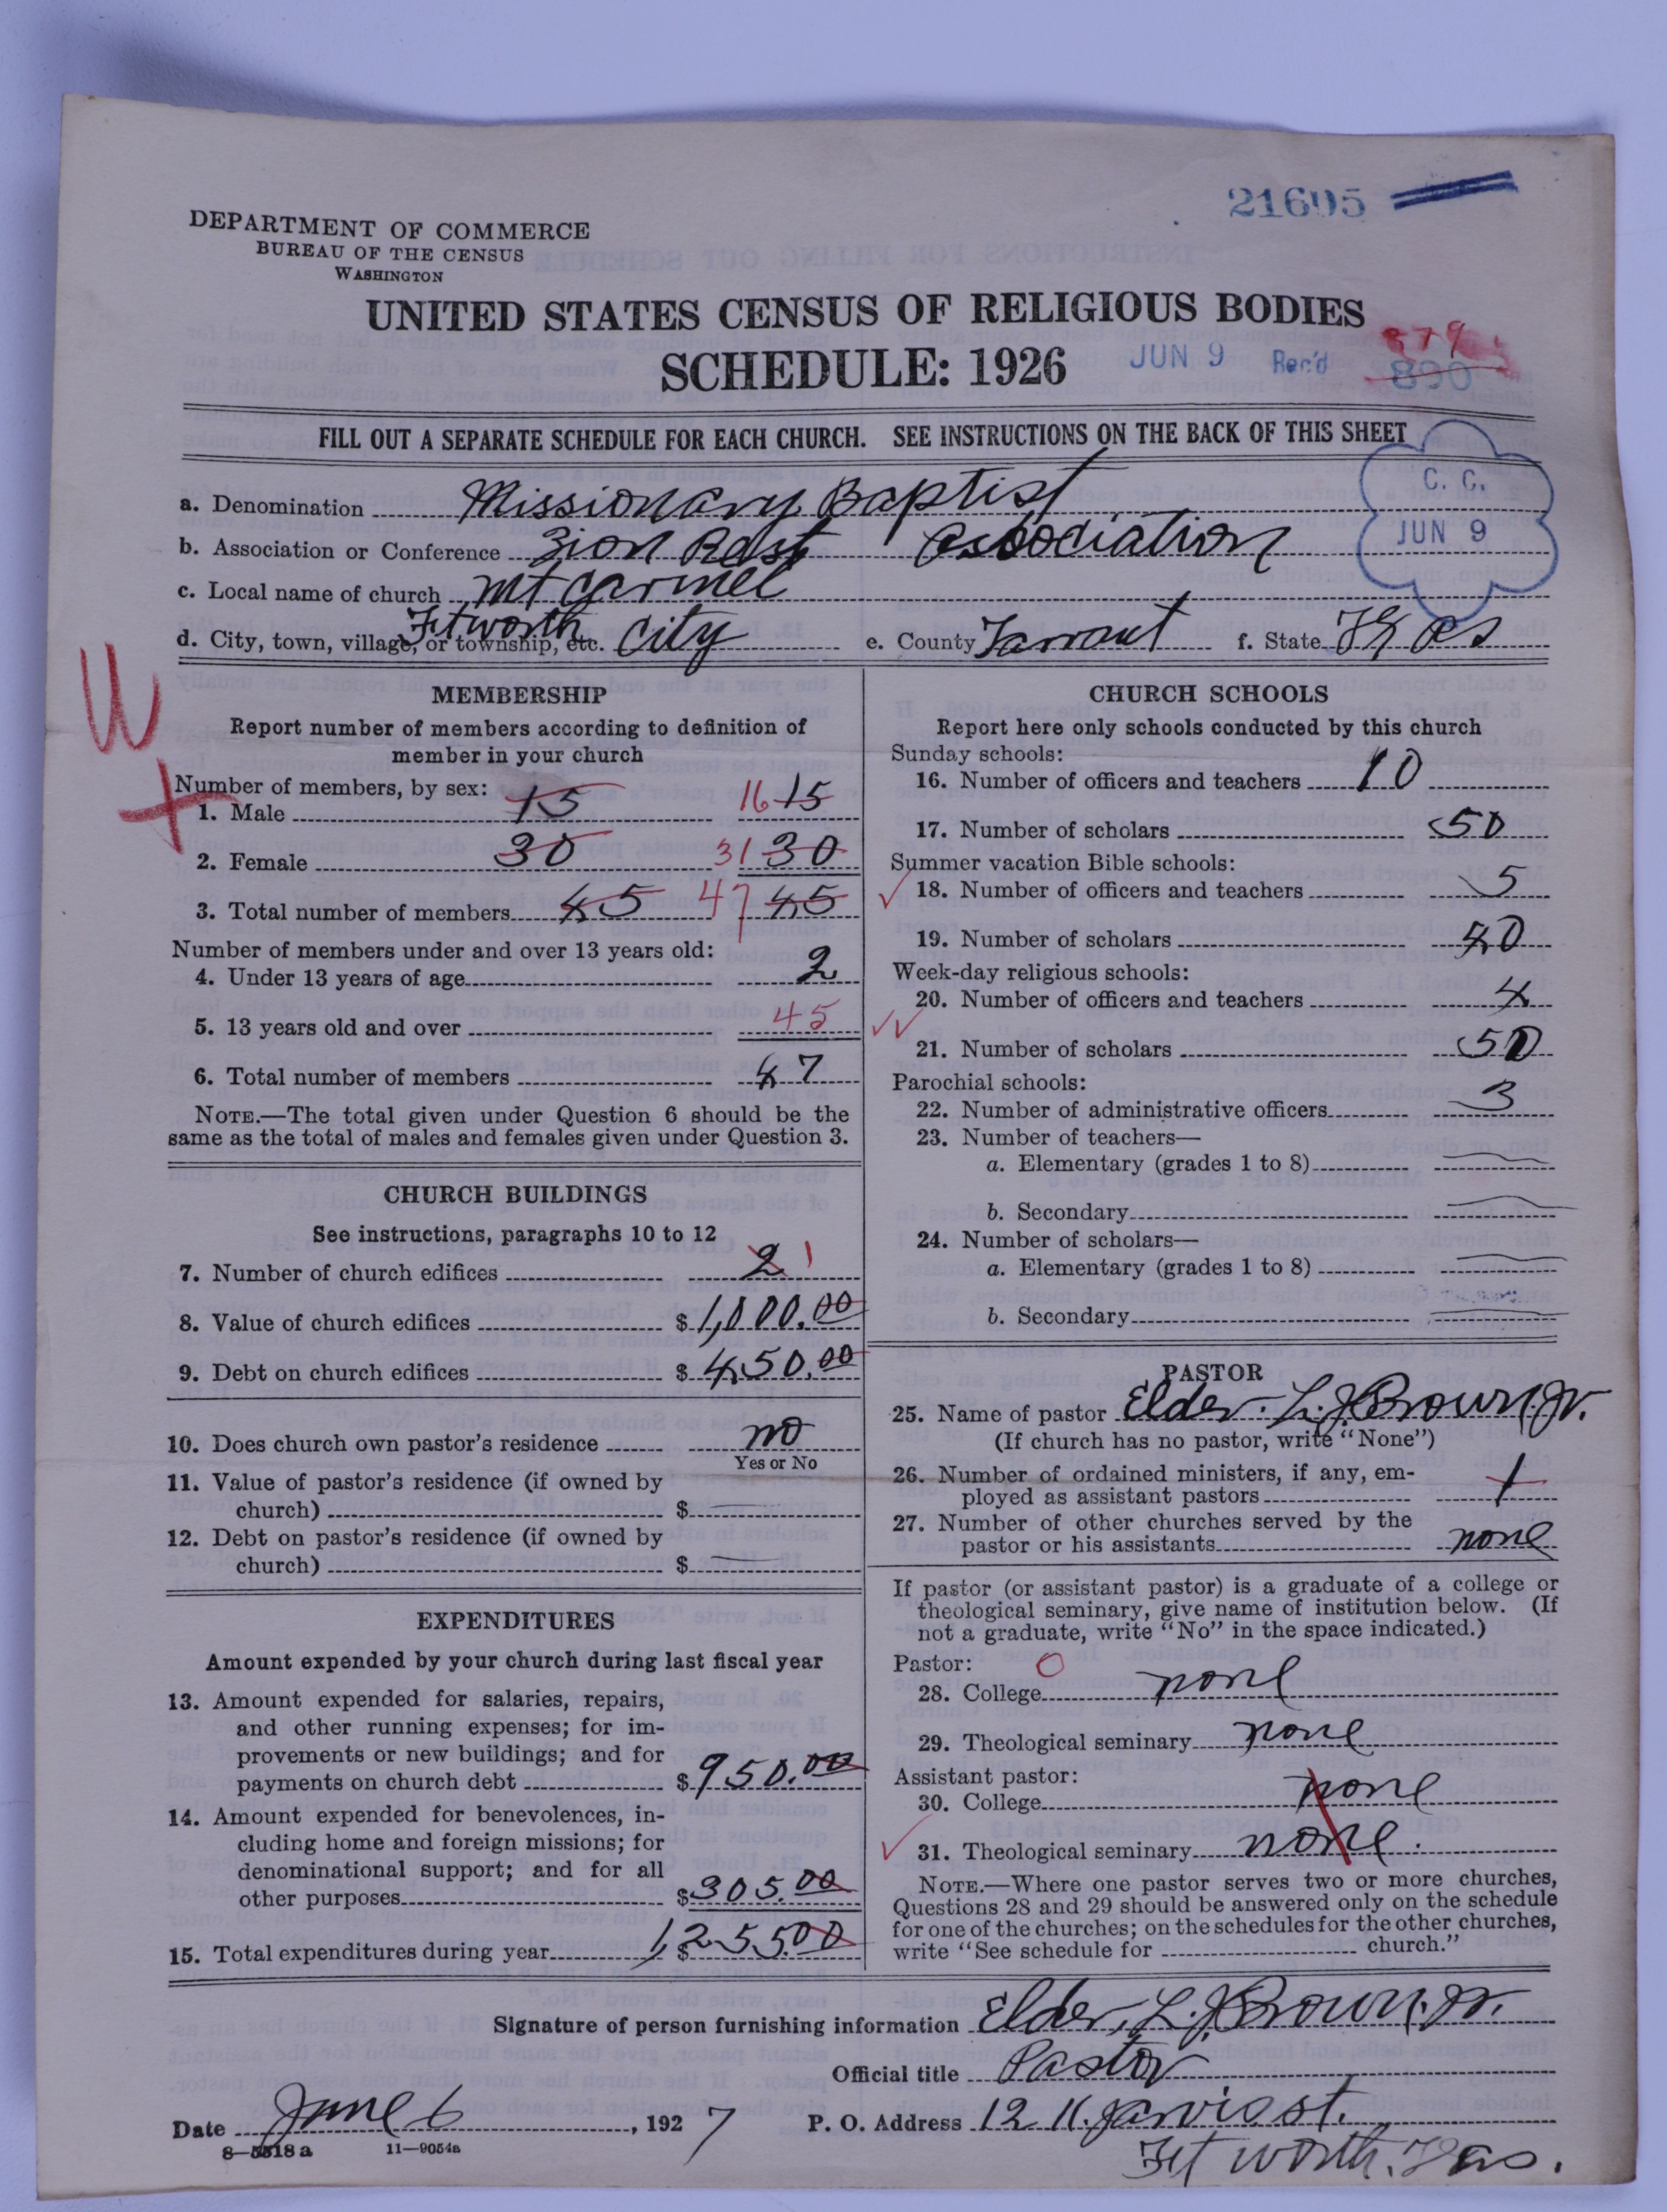 21695
DEPARTMENT OF COMMERCE
BUREAU OF THE CENSUS
WASHINGTON
UNITED STATES CENSUS OF RELIGIOUS BODIES
SCHEDULE: 1926
JUN 9 Rec'd
379
890
FILL OUT A SEPARATE SCHEDULE FOR EACH CHURCH. SEE INSTRUCTIONS ON THE BACK OF THIS SHEET
C. C.
JUN 9
a. Denomination Missionary Baptist
b. Association or Conference Zion Rest Association
c. Local name of church Mt Carmel
d. City, town, village, or township, etc. Ft worth City e. County Tarrant f. State Texas
W
+
MEMBERSHIP
Report number of members according to definition of
member in your church
Number of members, by sex:
1. Male 15 16 15
2. Female 30 31 30
3. Total number of members 45 47 45
Number of members under and over 13 years old:
4. Under 13 years of age 2
5. 13 years old and over 45
6. Total number of members 47
NOTE.—The total given under Question 6 should be the
same as the total of males and females given under Question 3.
CHURCH BUILDINGS
See instructions, paragraphs 10 to 12
7. Number of church edifices 2 1
8. Value of church edifices $ 1,000.00
9. Debt on church edifices $ 450.00
10. Does church own pastor's residence no
Yes or No
11. Value of pastor's residence (if owned by
church) $
12. Debt on pastor's residence (if owned by
church) $
EXPENDITURES
Amount expended by your church during last fiscal year
13. Amount expended for salaries, repairs,
and other running expenses; for im-
provements or new buildings; and for
payments on church debt $ 950.00
14. Amount expended for benevolences, in-
cluding home and foreign missions; for
denominational support; and for all
other purposes $ 305.00
15. Total expenditures during year $ 1,255.00
CHURCH SCHOOLS
Report here only schools conducted by this church
Sunday schools:
16. Number of officers and teachers 10
17. Number of scholars 50
Summer vacation Bible schools:
18. Number of officers and teachers 5
19. Number of scholars 40
Week-day religious schools:
20. Number of officers and teachers 4
21. Number of scholars 50
Parochial schools:
22. Number of administrative officers 3
23. Number of teachers—
a. Elementary (grades 1 to 8)
b. Secondary
24. Number of scholars—
a. Elementary (grades 1 to 8)
b. Secondary
PASTOR
25. Name of pastor Elder. L. J. Brown. Jr.
(If church has no pastor, write "None")
26. Number of ordained ministers, if any, em-
ployed as assistant pastors 1
27. Number of other churches served by the
pastor or his assistants none
If pastor (or assistant pastor) is a graduate of a college or
theological seminary, give name of institution below. (If
not a graduate, write "No" in the space indicated.)
Pastor: O
28. College none
29. Theological seminary none
Assistant pastor:
30. College none
31. Theological seminary none.
NOTE.—Where one pastor serves two or more churches,
Questions 28 and 29 should be answered only on the schedule
for one of the churches; on the schedules for the other churches,
write "See schedule for church."
Signature of person furnishing information Elder, L. J. Brown. Jr.
Official title Pastor
Date June 6, 1927 P. O. Address 1211. Jarvis st.
8—5518 a 11—9054a
Ft worth. Texas.